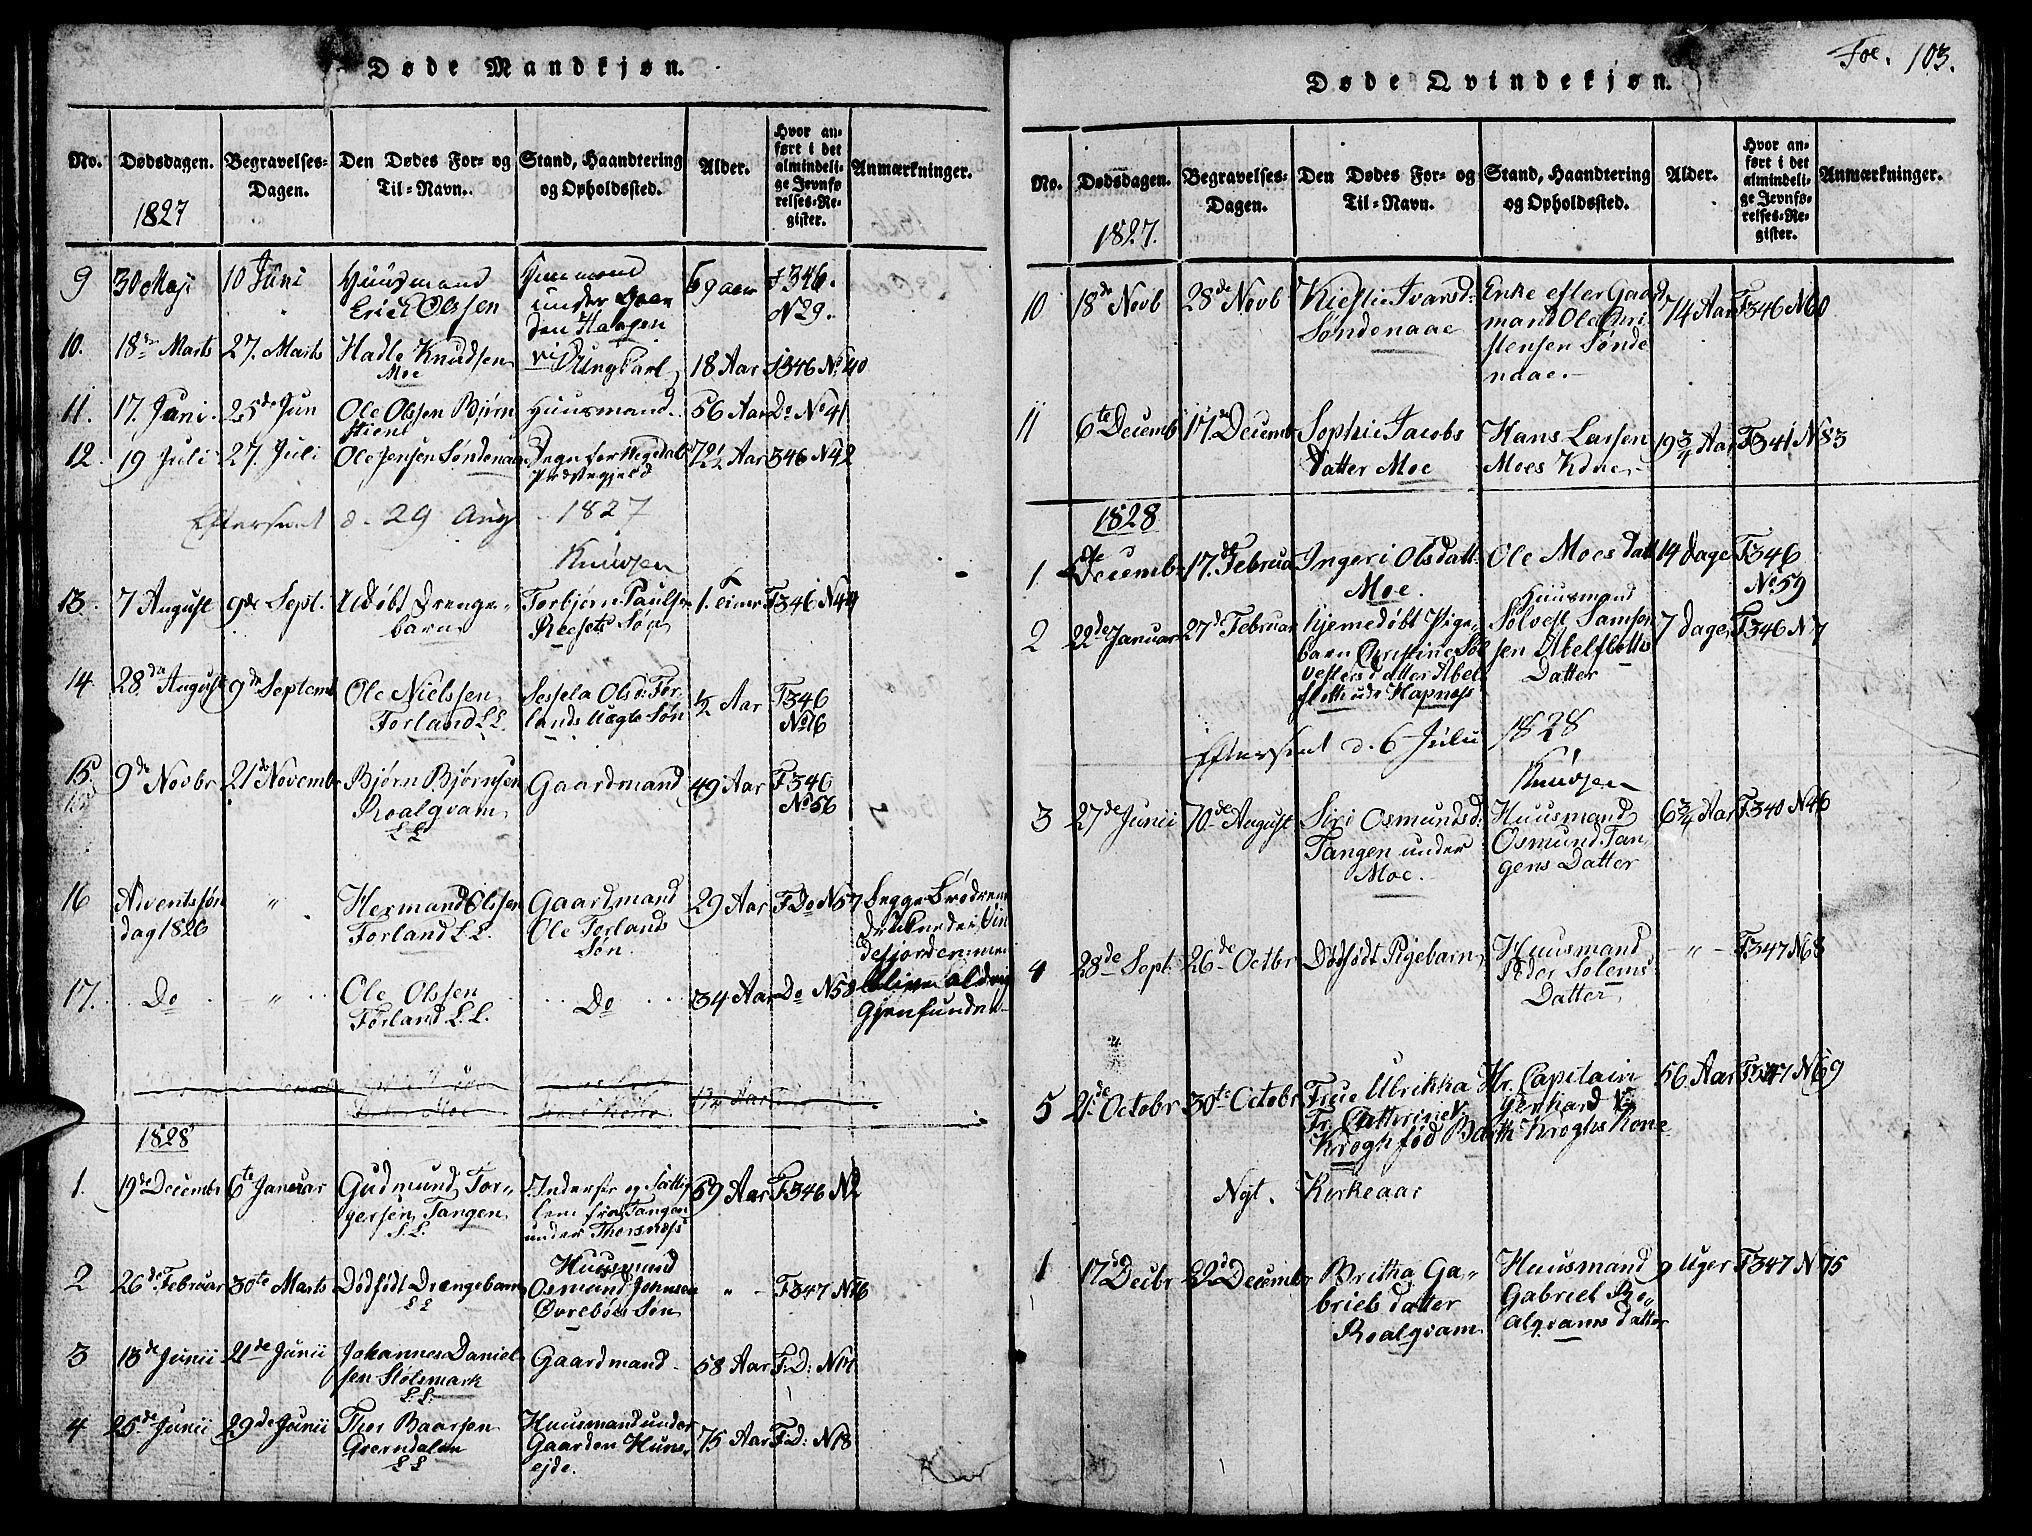 Døde Mandkjøn.
No. Dødsdagen. Begravelses-Dagen. Den Dødes For- og Til-Navn. Stand, Haandtering og Opholdssted. Alder. Hvor anført i det almindelige Jevnførelses-Register. Anmærkninger.
1827
9 30 Maji 10 Juni Huusmand
Erich Olssen
under
den Haagen
69 aar 346.
N 29.
10. 18de Marts 27. Marts Hadle Knudsen
Moe
Ungkarl 18 Aar 346 No 40
11. 17. Juni. 25de Jun Ole Olssen Bjørn
stient
Huusmand. 56 Aar Do No 41
12. 19 Juli 27. Juli Ole Jensen Søndenaae Degn for
Præstegjeld
72½ Aar 346 N 42
Eftersent d. 29 Aug 1827
Knudsen
13. 7 August 9de Sept. Udøbt Drenge-
barn
Torbjørn Paulsen
Søn
1. F346 N44
14. 28de August 9de Septemb Ole Nielssen
Forland L.L.
Sessela Olsd. For-
lands Uægte Søn
½ Aar F346
No 16
15 9de Novbr 21de Novemb Bjørn Bjørnsen
Roalqvam
L L
Gaardmand 49 Aar F346
No 56
16 Adventssøn
dag 1826
" Hermand Olssen
Forland L.L.
Gaardmand
Ole Forland
Søn.
29 Aar F Do N57 Begge Brødrene
17. Do " Ole Olssen
Forland L.L.
Do 34 Aar Do N58 aldrig
Gjenfunden
1828
1. 19de Decembr 6te Januar Gudmund Tor-
gersen Tangen
L.L.
Inderst og Fattig
lem fra Tangen
under Thorsnæss
59 Aar F346 N2
2 26de Februar 30te Marts Dødfødt Drengebarn
L L
Huusmand
Osmund Johnsen
Øvrebøes Søn
" F347 N16
3 13de Junii 21de Junii Johannes Daniel-
sen Stølsmark
L.L.
Gaardmand 58 Aar F: D: N17
4 25de Junii 29de Junii Thor Baarsen
Grørndalen
L L
Huusmand under
Gaarden Huns
ejde.
75 Aar F: D: N18
Foe. 103.
Døde Qvindekjøn.
No. Dødsdagen. Begravelses-Dagen. Den Dødes For- og Til-Navn. Stand, Haandtering og Opholdssted. Alder. Hvor anført i det almindelige Jevnførelses-Register. Anmærkninger.
1827.
10 18de Novb 28de Novb Kiestie Ivarsd:
Søndenaae
Enke efter Gaard
mand Ole Chri
stensen Sønde
naae.
74 Aar F346 N60
11 6te Decemb 17de Decemb Sophie Jacobs
Datter Moe
Hans Larsen
Moes Kone
19¾ Aar F341 N83
1828
1 Decembr 17. Februar Ingeri Olsdatt
Moe.
Ole Moes Datt
Huusmand
14 Dage F346
No. 59
2 22de Januar 27d Februar Hjemedøbt Pige-
barn Christine Søl
vesters datter Abel
flotte
Sølvest Samson
sen Abelflotts
Datter
7 Dage F346 N7
Eftersent d. 6 Julii 1828
Knudsen
3 27de Junii 10de August Siri Osmundsd:
Tangen under
Moe.
Huusmand
Osmund Tan
gens Datter
6¾ Aar F340 N46
4 28de Sept 26de Octbr Dødfødt Pigebarn Huusmand
Peder Solems
Datter
" F347 N68
5 21de Octobr 30te Octobr Frue Ulrikka
Fr. Cathrine v:
Krogh fød Barth
Hr. Capitain
Gerhard v:
Kroghs Kone
56 Aar F347 N69
Nyt. Kirkeaar
1 17de Decbr 29de Decembr Britha Ga-
briels datter
Roalqvam
Huusmand
Gabriel Ro-
alqvams datter
9 Uger F347 N75